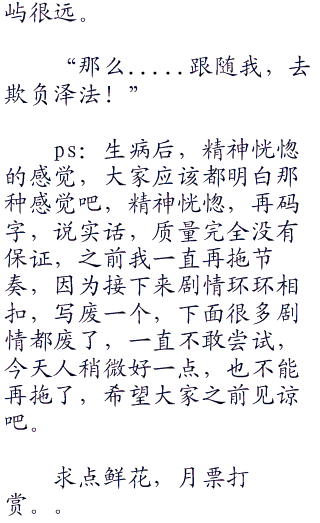 屿很远。
“那么.....跟随我，去
欺负泽法！”
ps：生病后，精神恍惚
的感觉，大家应该都明白那
种感觉吧，精神恍惚，再码
字，说实话，质量完全没有
保证，之前我一直再拖节
奏，因为接下来剧情环环相
扣，写废一个，下面很多剧
情都废了，一直不敢尝试，
今天人稍微好一点，也不能
再拖了，希望大家之前见谅
吧。
求点鲜花，月票打
赏。。